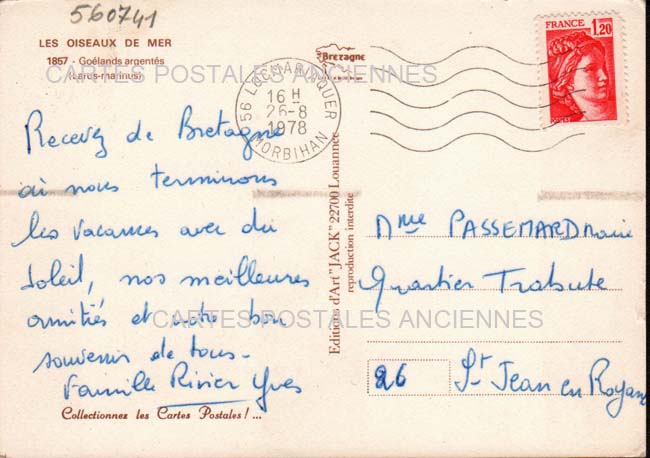 560741
LES OISEAUX DE MER
1857 - Goélands argentés
(Larus-marinus)
Bretagne
FRANCE
1,20
56 LOCMARIAQUER
16 H
26-8
1978
MORBIHAN
CARTES POSTALES ANCIENNES
Recevez de Bretagne
où nous terminons
les vacances avec du
soleil, nos meilleures
amitiés et notre bon
souvenir de tous-
Famille Rivier Yves
Collectionnez les Cartes Postales ! ...
Editions d'Art "JACK" 22700 Louannec
reproduction interdite
Mme PASSEMARD
Quartier Trabute
26 St Jean en Royans
CARTES POSTALES ANCIENNES